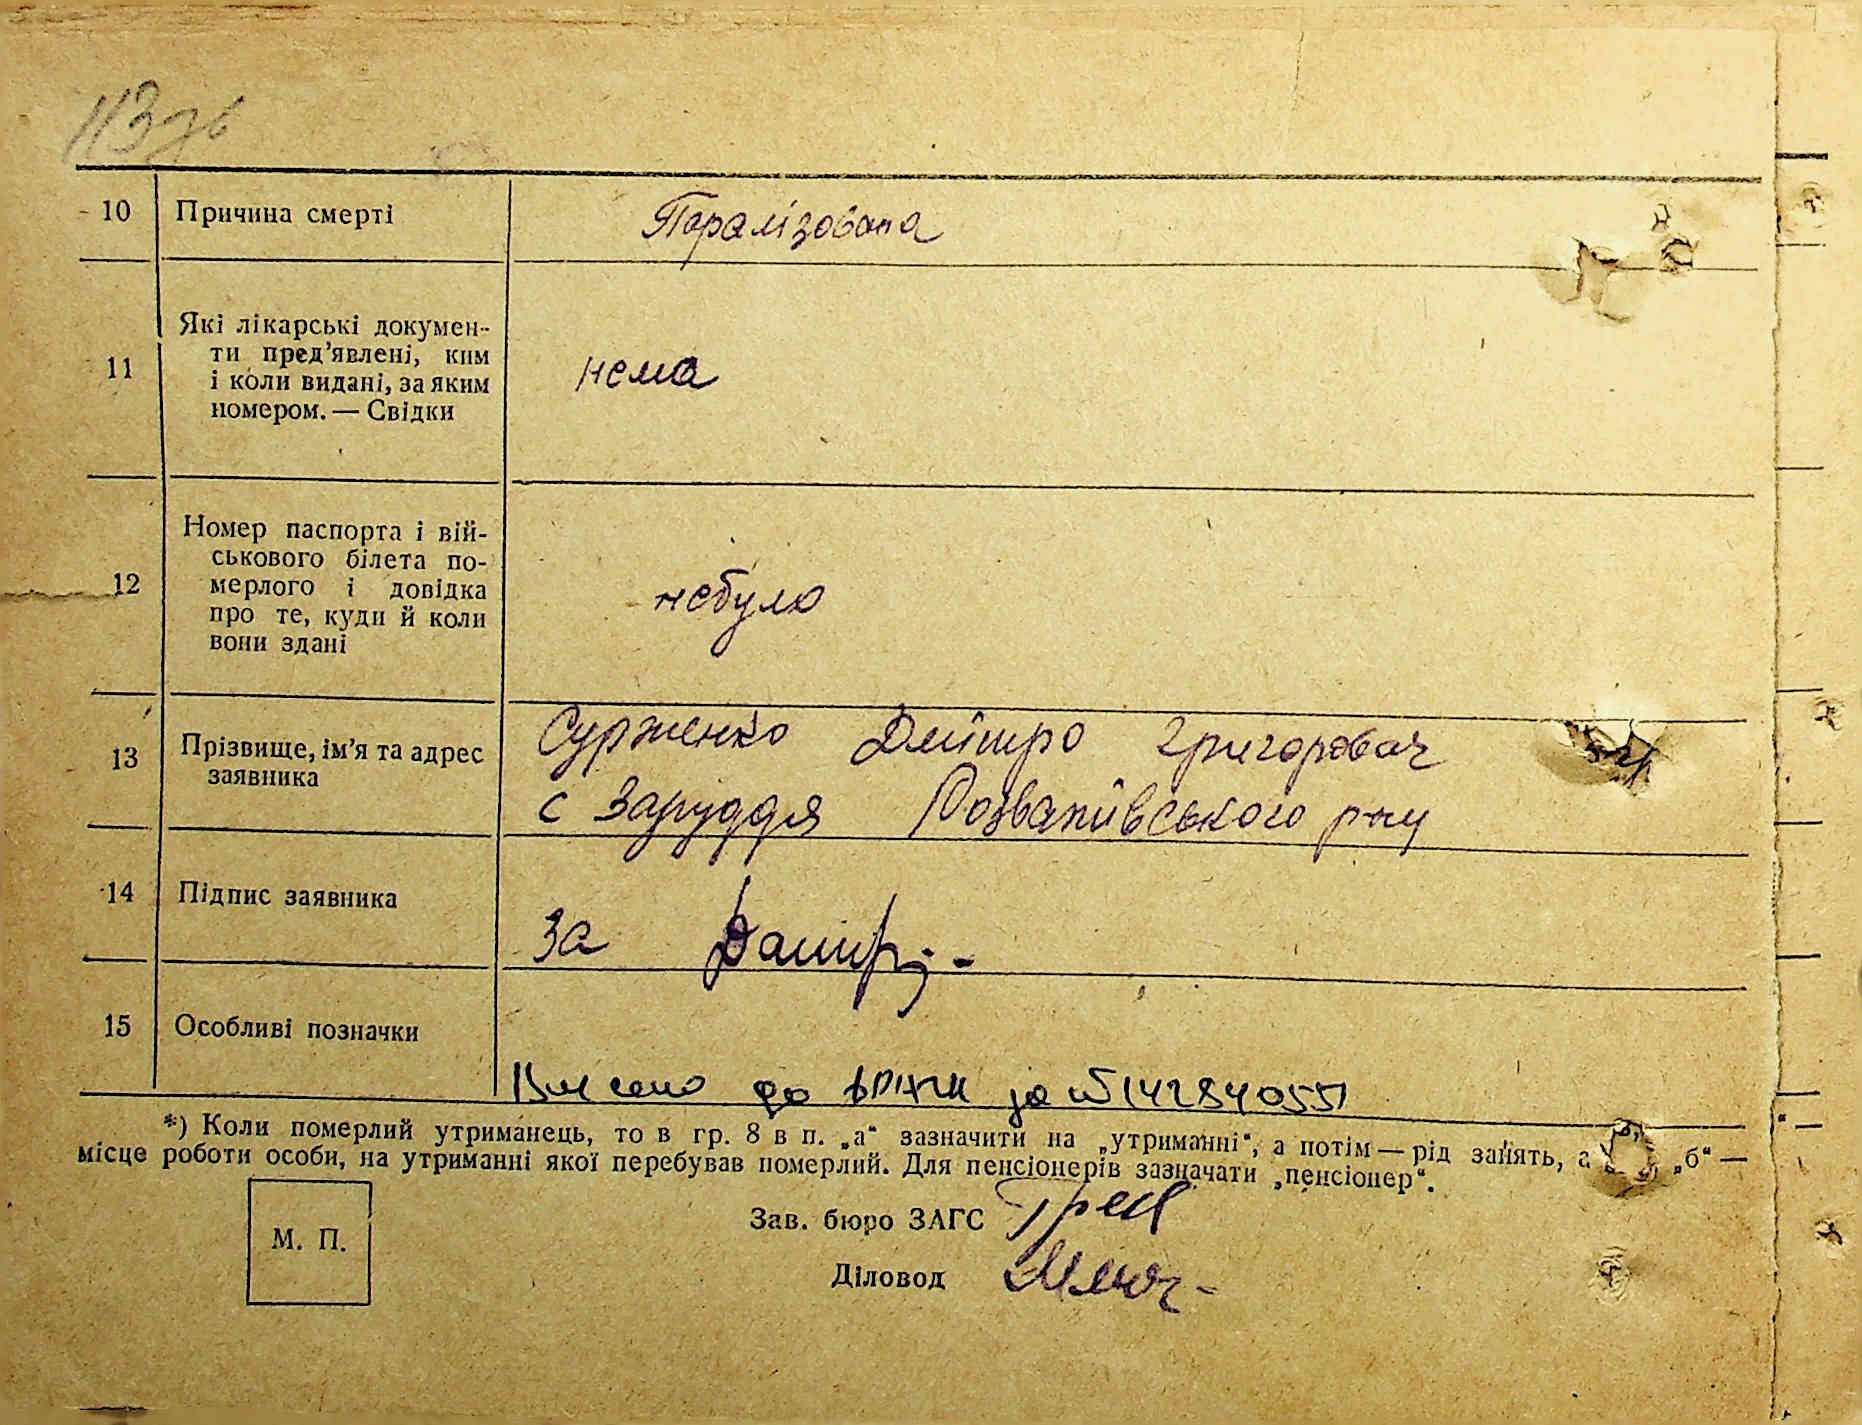 113
10 Причина смерті Паралізована
11 Які лікарські докумен-
ти пред’явлені, ким
і коли видані, за яким
номером. — Свідки
нема
12 Номер паспорта і вій-
ськового білета по-
мерлого і довідка
про те, куди й коли
вони здані
небуло
13 Прізвище, ім’я та адрес
заявника
Сурженко Дмітро Григоровач
с Заруддя Розважівського р-ну
14 Підпис заявника
За
15 Особливі позначки
Внесено до ДРАЦСГ за №14284055
*) Коли померлий утриманець, то в гр. 8 в п. „а“ зазначити на „утриманні“, а потім — рід занять, а „б“ —
місце роботи особи, на утриманні якої перебував померлий. Для пенсіонерів зазначати „пенсіонер“.
М. П.
Зав. бюро ЗАГС
Діловод